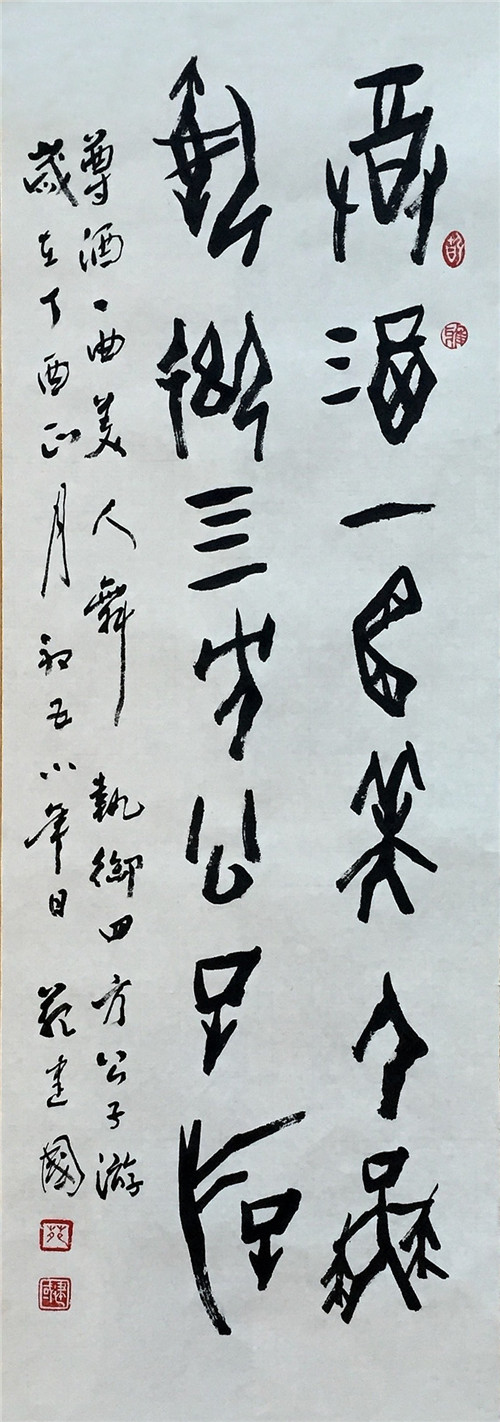 尊酒一曲美人舞
執御四方公子游
尊酒一曲美人舞 執御四方公子游
歲在丁酉正月初五小年日 苑建國
苑
建國